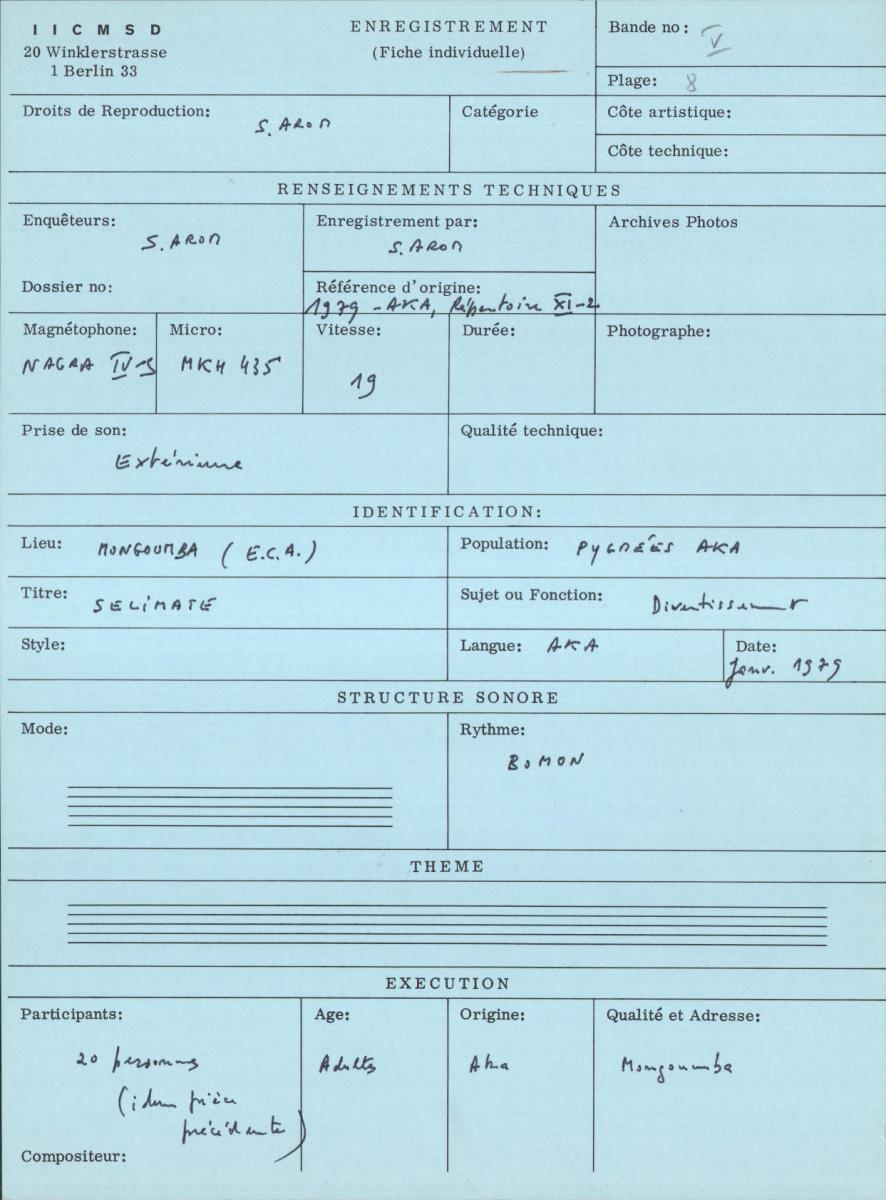 I I C M S D
20 Winklerstrasse
1 Berlin 33
ENREGISTREMENT
(Fiche individuelle)
Bande no: V
Plage: 8
Droits de Reproduction: S. AROM
Catégorie
Côte artistique:
Côte technique:
RENSEIGNEMENTS TECHNIQUES
Enquêteurs: S. AROM
Dossier no:
Enregistrement par: S. AROM
Référence d'origine:
1979 - AKA, Répertoire XI-2
Archives Photos
Magnétophone:
NAGRA IV-S
Micro:
MKH 435
Vitesse:
19
Durée:
Photographe:
Prise de son:
Extérieure
Qualité technique:
IDENTIFICATION:
Lieu: MONGOUMBA (E.C.A.)
Population: PYGMÉES AKA
Titre: SELIMATE
Sujet ou Fonction: Divertissement
Style:
Langue: AKA
Date:
Janv. 1979
STRUCTURE SONORE
Mode:
Rythme:
BOMON
THEME
EXECUTION
Participants:
20 personnes
(idem pièce
précédente)
Compositeur:
Age:
Adultes
Origine:
Aka
Qualité et Adresse:
Mongoumba